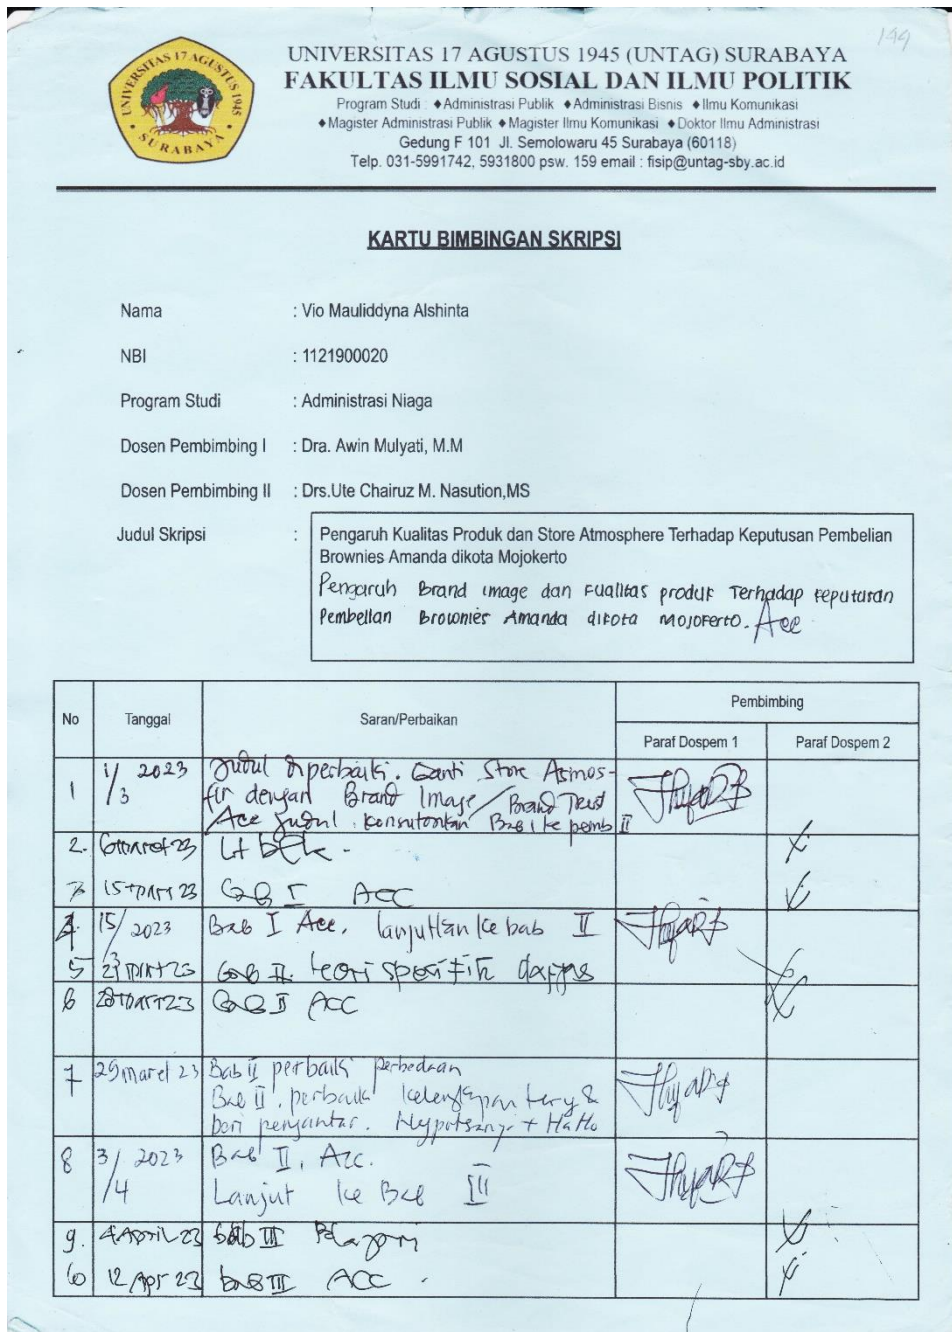 199
UNIVERSITAS 17 AGUSTUS 1945 (UNTAG) SURABAYA
FAKULTAS ILMU SOSIAL DAN ILMU POLITIK
Program Studi : ♦Administrasi Publik ♦Administrasi Bisnis ♦Ilmu Komunikasi
♦Magister Administrasi Publik ♦Magister Ilmu Komunikasi ♦Doktor Ilmu Administrasi
Gedung F 101 Jl. Semolowaru 45 Surabaya (60118)
Telp. 031-5991742, 5931800 psw. 159 email : fisip@untag-sby.ac.id
UNIVERSITAS 17 AGUSTUS 1945
SURABAYA
KARTU BIMBINGAN SKRIPSI
Nama : Vio Mauliddyna Alshinta
NBI : 1121900020
Program Studi : Administrasi Niaga
Dosen Pembimbing I : Dra. Awin Mulyati, M.M
Dosen Pembimbing II : Drs.Ute Chairuz M. Nasution,MS
Judul Skripsi : Pengaruh Kualitas Produk dan Store Atmosphere Terhadap Keputusan Pembelian
Brownies Amanda dikota Mojokerto
Pengaruh Brand image dan kualitas produk Terhadap keputusan
Pembelian Brownies Amanda dikota Mojokerto. Acc
No Tanggal Saran/Perbaikan Pembimbing
Paraf Dospem 1 Paraf Dospem 2
1 1/3 2023 Judul diperbaiki. Ganti Store Atmos-
fir dengan Brand Image/Brand Trust
Acc judul. Bab I ke pemb II
2. 6 maret 23
3 15 23 Bab I ACC
4. 15/3 2023 Bab I Acc. lanjutkan ke bab II
5 23 Bab II. teori spesifik
6 28 23 Bab II ACC
7 29 maret 23 Bab II perbaiki Perbedaan
Bab II. perbaiki &
beri pengantar.
8 3/4 2023 Bab II, Acc.
Lanjut ke Bab III
9. 4 April 23 bab III
10 12 Apr 23 bab III ACC.